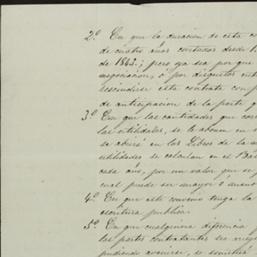 2º En que la duracion de esta co
de cuatro años contados desde 1º
de 1863; pero ya sea por que
negociacion, ó por disgustos entre
rescindirse este contrato con
de anticipacion de la parte q
3º En que las cantidades que cor
las utilidades, se le abonen en
se abrirá en los Libros de la
utilidades se calculan en el Da
cada año, por un valor que se
cual puede ser mayor ó menos
4º En que este convenio tenga la
escritura publica.
5º En que cualquiera diferencia
las partes contratantes
pudiendo avenirse, se someterá